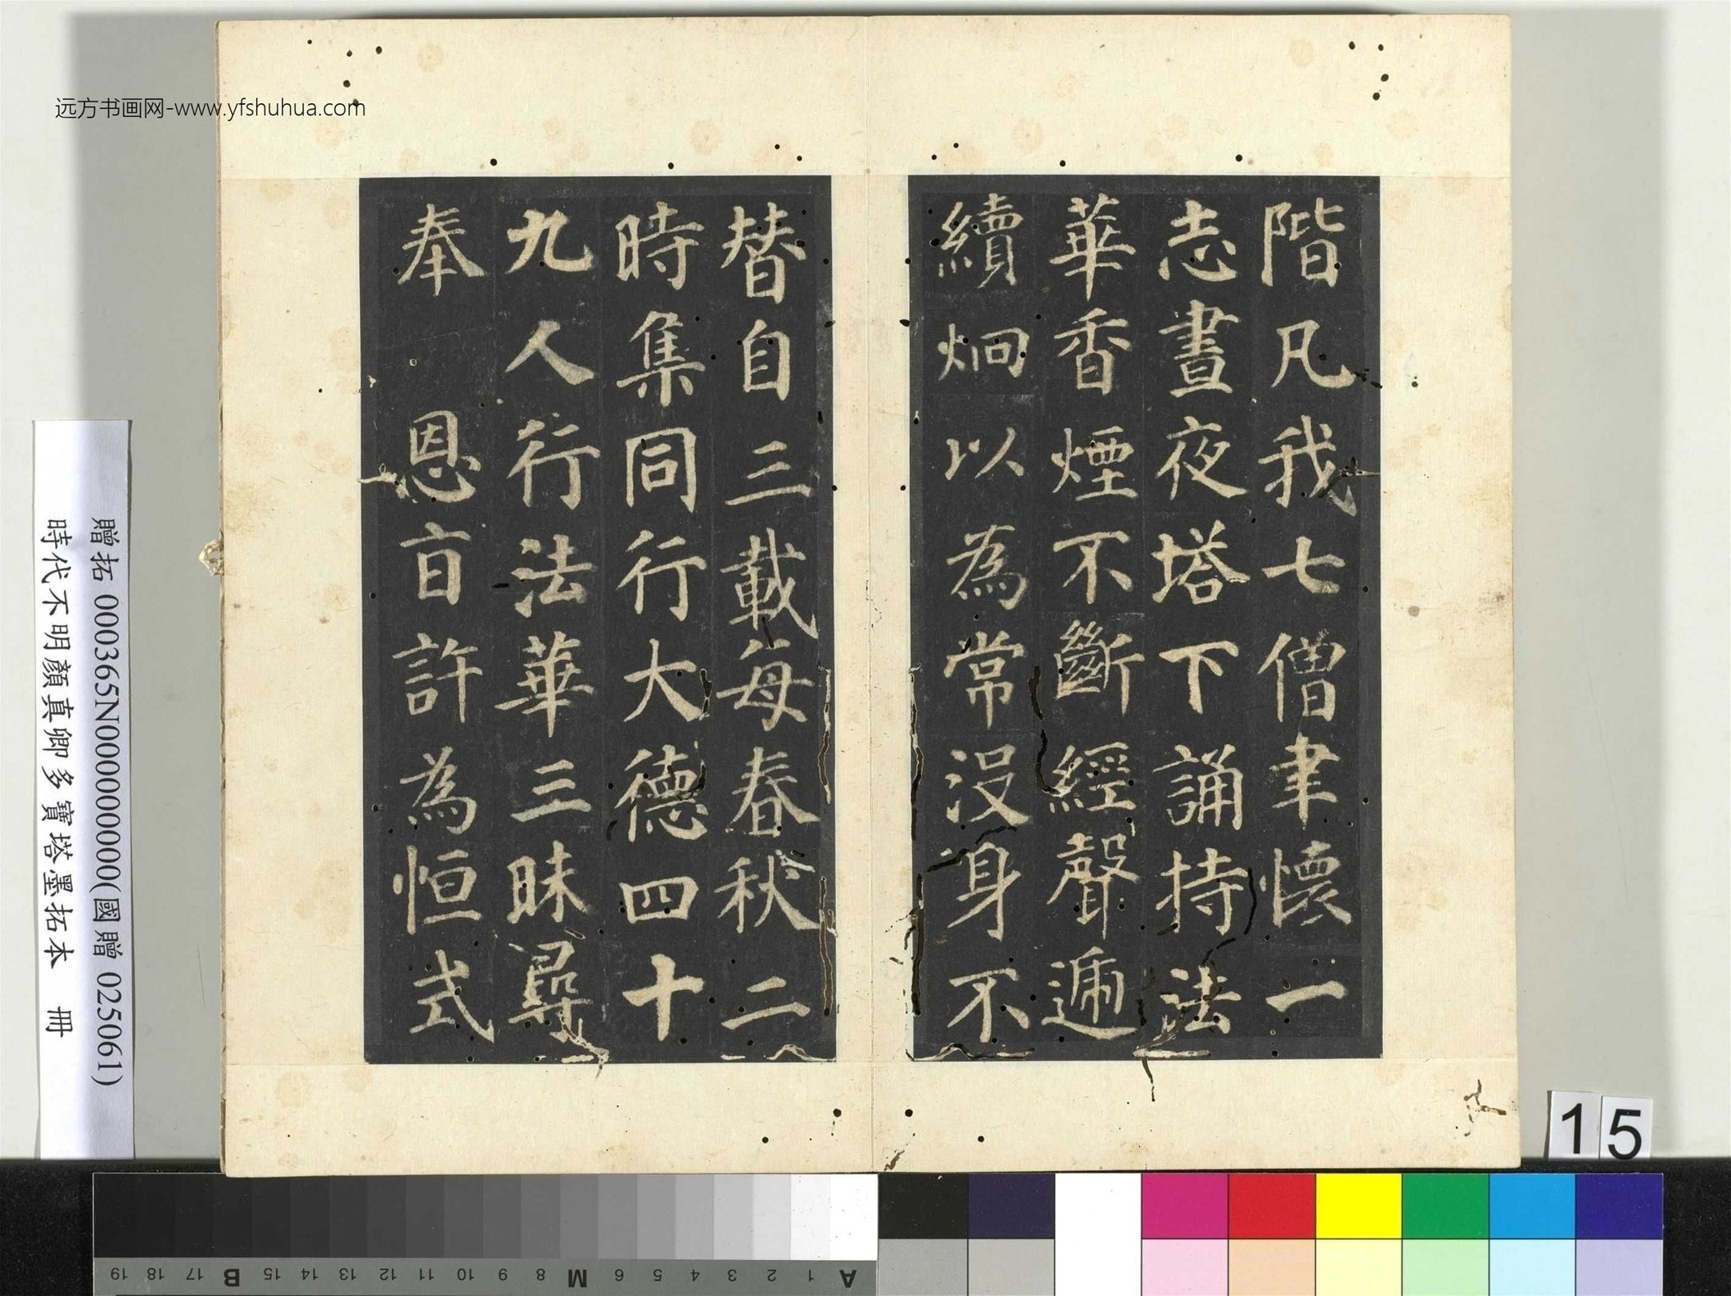 远方书画网-www.yfshuhua.com
階凡我七僧聿懷一
志晝夜塔下誦持法
華香煙不斷經聲遞
續炯以為常沒身不
替自三載每春秋二
時集同行大德四十
九人行法華三昧尋
奉恩旨許為恒式
贈拓 000365N000000000(國贈 025061)
時代不明顏真卿多寶塔墨拓本 冊
15
A 1 2 3 4 5 6 M 8 9 10 11 12 13 14 15 B 17 18 19